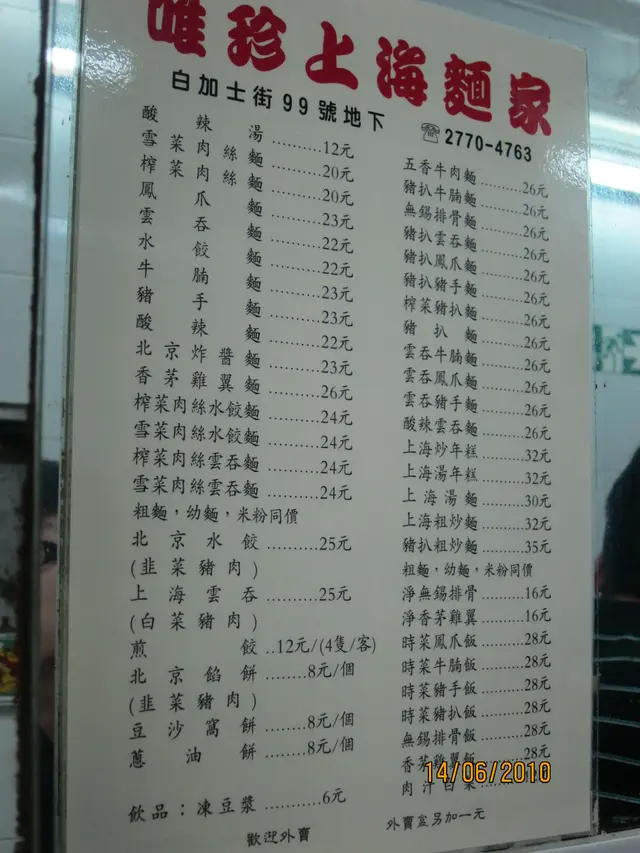 唯珍上海麵家
白加士街99號地下
☎2770-4763
酸辣湯.........12元
雪菜肉絲麵.........20元
榨菜肉絲麵.........20元
鳳爪麵.........23元
雲吞麵.........22元
水餃麵.........22元
牛腩麵.........23元
豬手麵.........23元
酸辣麵.........22元
北京炸醬麵.........23元
香茅雞翼麵.........26元
榨菜肉絲水餃麵.........24元
雪菜肉絲水餃麵.........24元
榨菜肉絲雲吞麵.........24元
雪菜肉絲雲吞麵.........24元
粗麵,幼麵,米粉同價
北京水餃.........25元
(韭菜豬肉)
上海雲吞.........25元
(白菜豬肉)
煎餃..12元/(4隻/客)
北京餡餅........8元/個
(韭菜豬肉)
豆沙窩餅........8元/個
蔥油餅........8元/個
飲品:凍豆漿..........6元
歡迎外賣
五香牛肉麵.........26元
豬扒牛腩麵.........26元
無錫排骨麵.........26元
豬扒雲吞麵.........26元
豬扒鳳爪麵.........26元
豬扒豬手麵.........26元
榨菜豬扒麵.........26元
豬扒麵.........26元
雲吞牛腩麵.........26元
雲吞鳳爪麵.........26元
雲吞豬手麵.........26元
酸辣雲吞麵.........26元
上海炒年糕.........32元
上海湯年糕.........32元
上海湯麵.........30元
上海粗炒麵.........32元
豬扒粗炒麵.........35元
粗麵,幼麵,米粉同價
淨無錫排骨.........16元
淨香茅雞翼.........16元
時菜鳳爪飯.........28元
時菜牛腩飯.........28元
時菜豬手飯.........28元
時菜豬扒飯.........28元
無錫排骨飯.........28元
香茅雞翼飯.........28元
肉汁白菜
外賣盒另加一元
14/06/2010